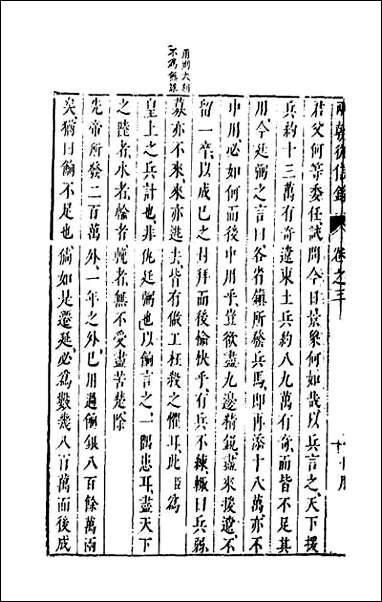 兩朝從信錄 卷之三 十 十月
君父何等委任試問今日景象何如哉以兵言之天下援
兵約十三萬有奇遼東土兵約八九萬有奇而皆不足其
用今廷弼之言曰各省鎮所發兵馬即再添十八萬亦不
中用必如何而後中用乎豈欲盡九邊精銳盡來援遼不
留一卒以成已之封拜而後愉快乎有兵不練輒曰兵弱
募亦不來來亦逃去皆有做工枉殺之懼耳此臣為
皇上之兵計也非仇廷弼也以餉言之一隅患耳盡天下
之陸者水者輸者輓者無不受盡苦楚除
先帝所發二百萬外一年之外已用過餉銀八百餘萬兩
矣猶曰餉不足也倘如是遷延必為數幾八百萬而後成
用則大
不為